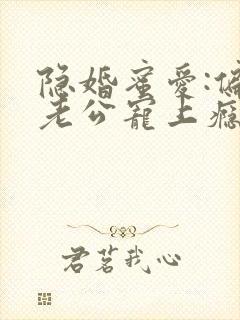 隐婚蜜爱:偏
老公宠上瘾
君茗我心